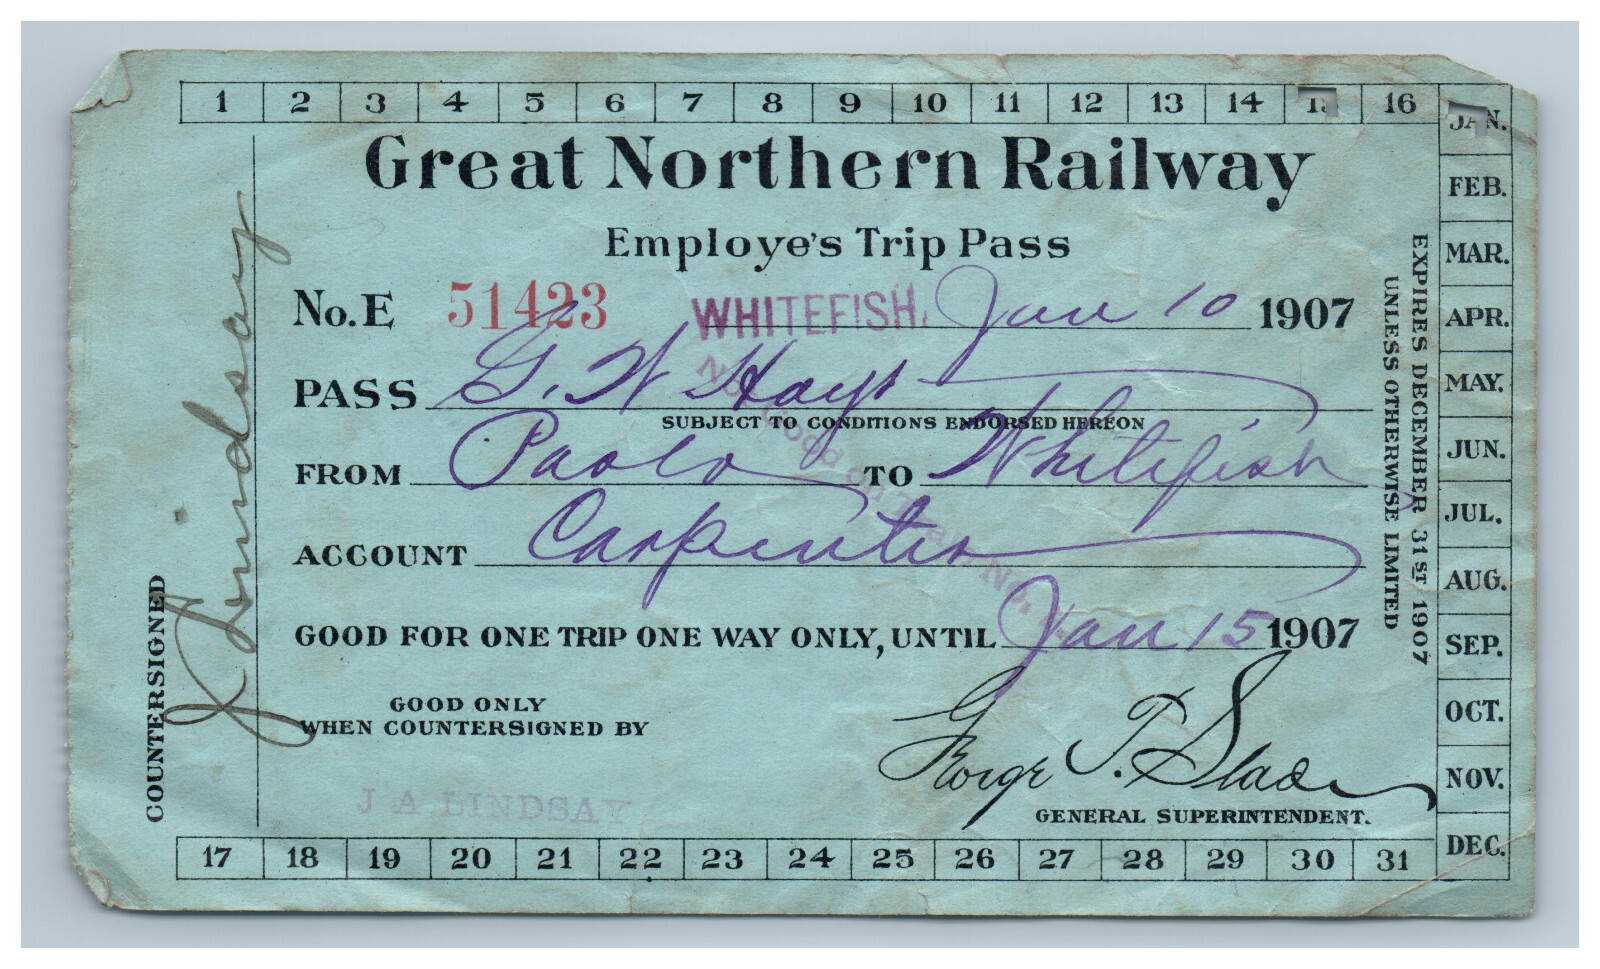 1 2 3 4 5 6 7 8 9 10 11 12 13 14 15 16
JAN.
FEB.
MAR.
APR.
MAY.
JUN.
JUL.
AUG.
SEP.
OCT.
NOV.
DEC.
Great Northern Railway
Employe's Trip Pass
No. E 51423 WHITEFISH, Jan 10 1907
PASS G. W Hays
SUBJECT TO CONDITIONS ENDORSED HEREON
FROM Paola TO Whitefish
Not Good on Train No.
ACCOUNT Carpenter
GOOD FOR ONE TRIP ONE WAY ONLY, UNTIL Jan 15 1907
GOOD ONLY
WHEN COUNTERSIGNED BY
J A LINDSAY
George T. Slade
GENERAL SUPERINTENDENT.
COUNTERSIGNED
J Lindsay
EXPIRES DECEMBER 31ST 1907
UNLESS OTHERWISE LIMITED
17 18 19 20 21 22 23 24 25 26 27 28 29 30 31